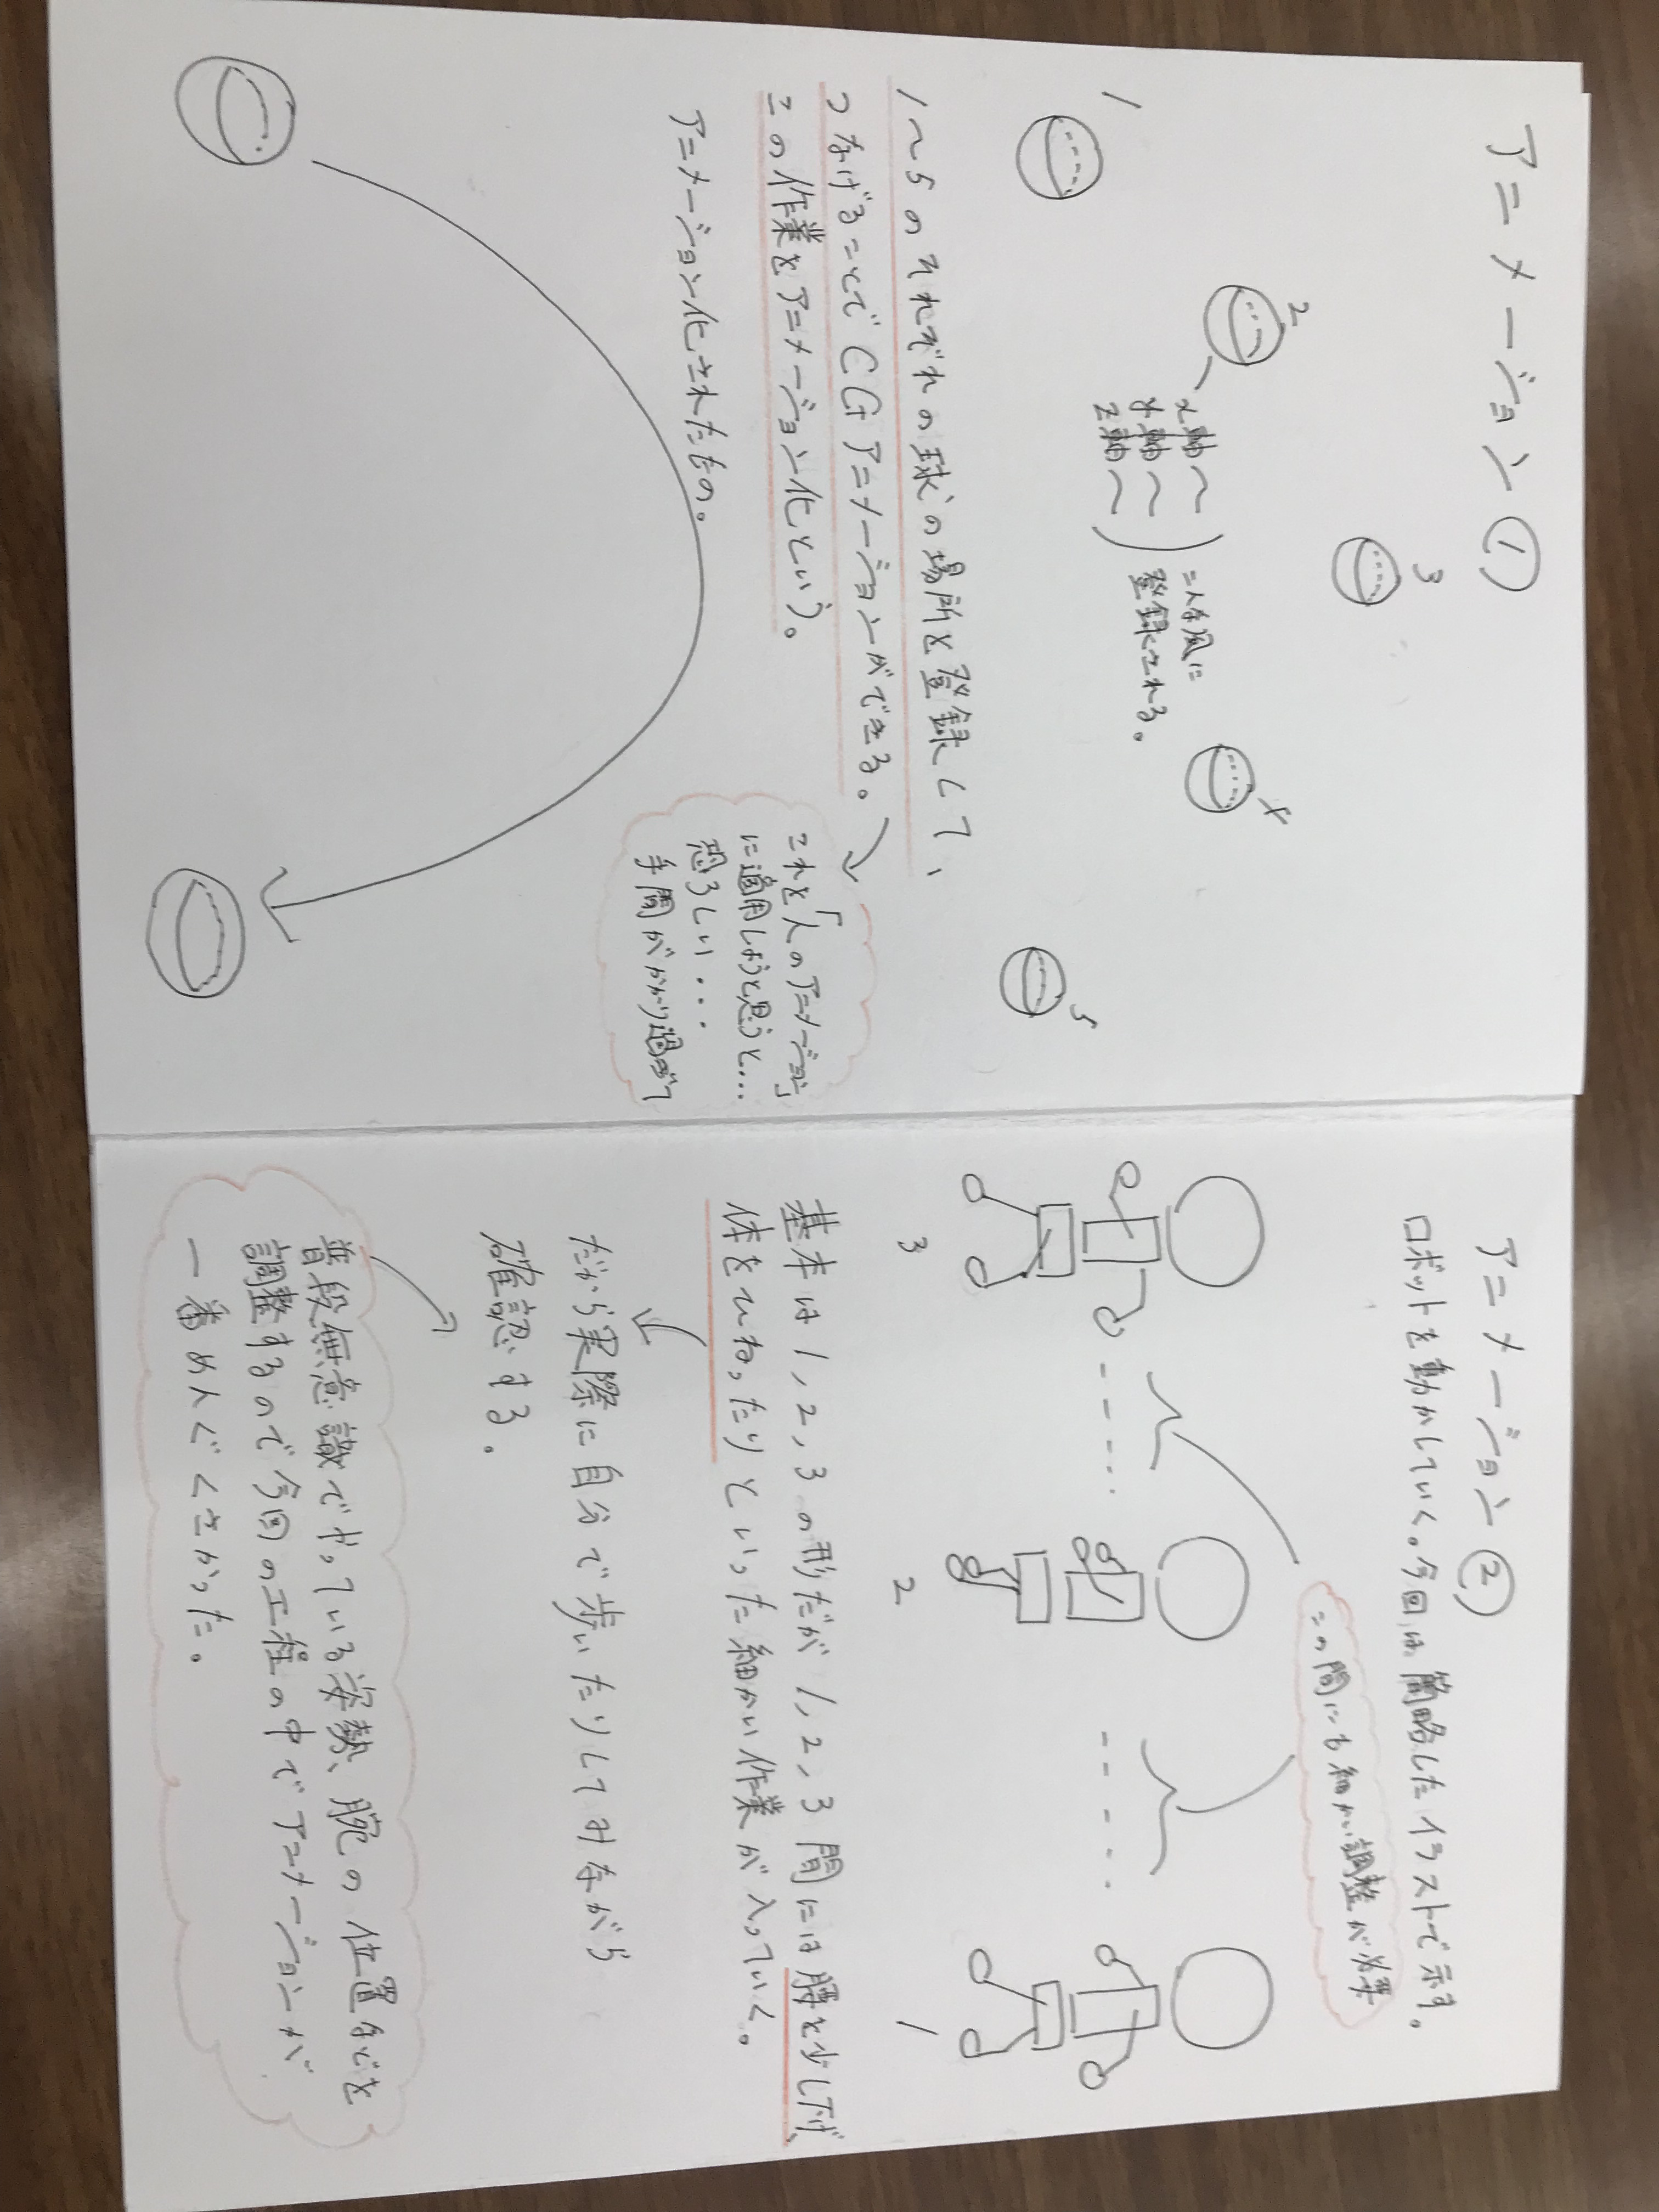 アニメーション①
1
2
3
4
5
x軸〜
y軸〜
z軸〜
こんな風に
登録される。
1〜5のそれぞれの球の場所を登録して、
つなげることでCGアニメーションができる。
この作業をアニメーション化という。
これを「人のアニメーション」
に適用しようと思うと…
恐ろしい・・・
手間がかかり過ぎて
アニメーション化されたもの。
アニメーション②
ロボットを動かしていく。今回は簡略したイラストで示す。
この間にも細かい調整が必要
3
2
1
基本は1,2,3の形だが1,2,3間には腰を少し下げ、
体をひねったりといった細かい作業が入っていく。
だから実際に自分で歩いたりしてみながら
確認する。
普段無意識でやっている姿勢、腕の位置などを
調整するので今回の工程の中でアニメーションが
一番めんどくさかった。